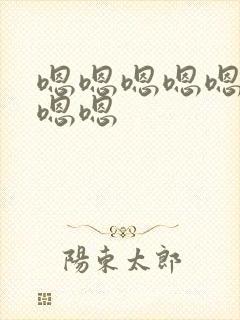 嗯嗯嗯嗯嗯
嗯嗯
陽東太郎